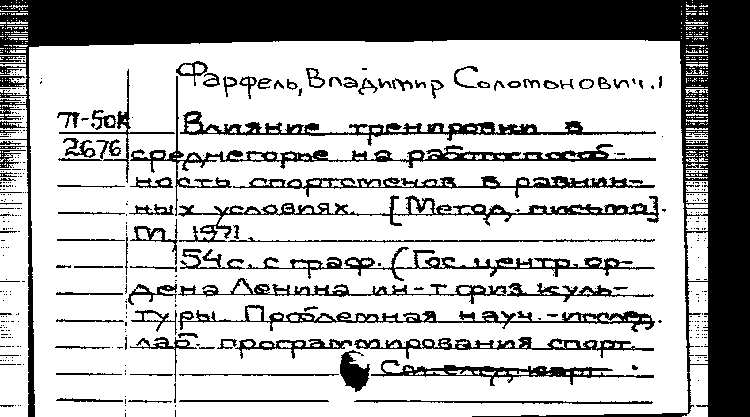 Фарфель, Владимир Соломонович.
П-50К Влияние тренировки в
2676 среднегорье на работоспособ-
ность спортсменов в равнин-
ных условиях. [Метод. письмо].
М, 1971.
54 с. с граф. (Гос. центр. ор-
дена Ленина ин-т физ. куль-
туры. Проблемная науч.-исслед.
лаб. программирования спорт.
См. след. карт.